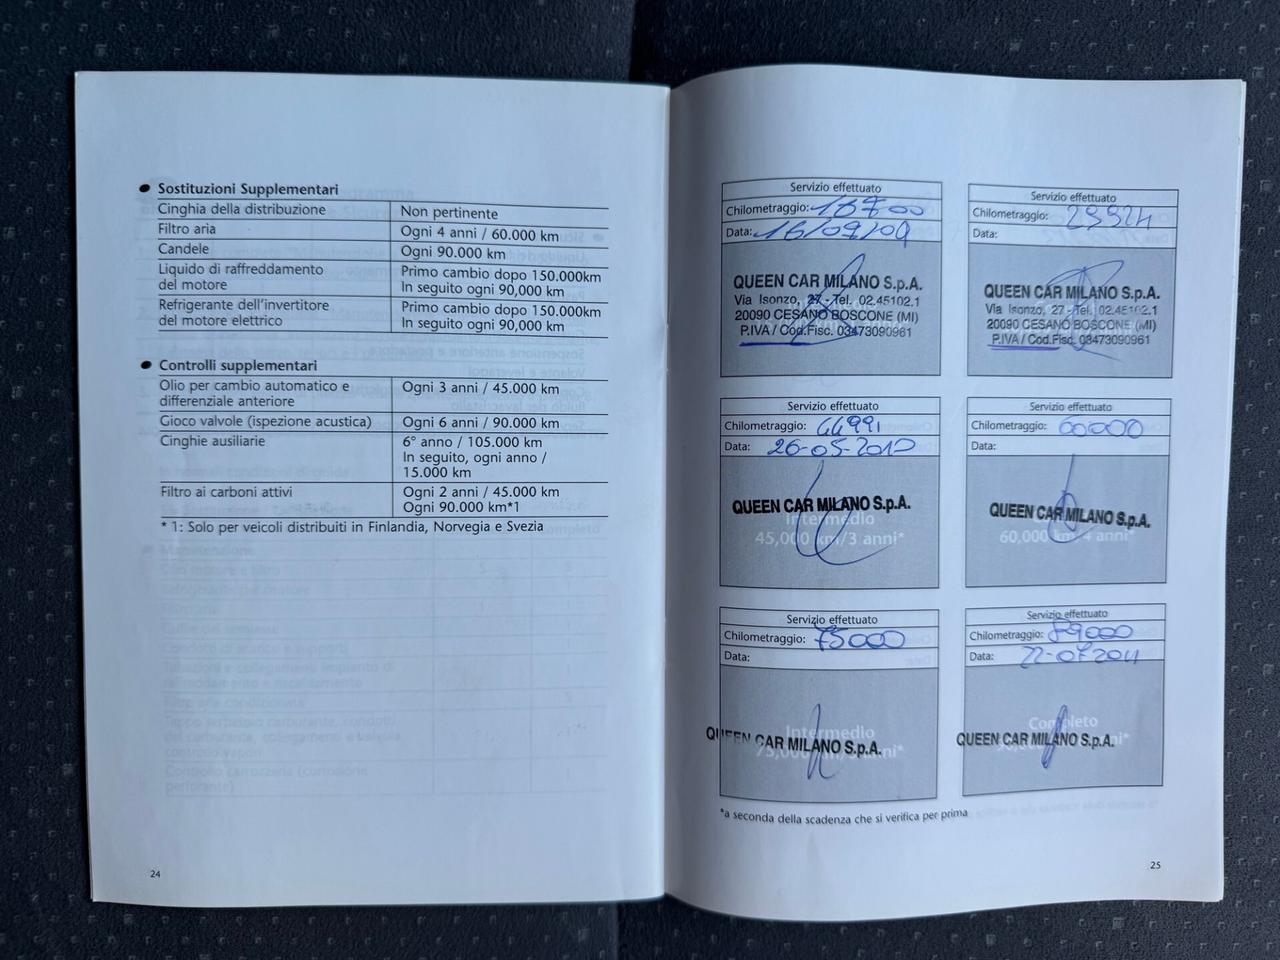 Sostituzioni Supplementari
Cinghia della distribuzione Non pertinente
Filtro aria Ogni 4 anni / 60.000 km
Candele Ogni 90.000 km
Liquido di raffreddamento del motore Primo cambio dopo 150.000km
In seguito ogni 90,000 km
Refrigerante dell'invertitore del motore elettrico Primo cambio dopo 150.000km
In seguito ogni 90,000 km
Controlli supplementari
Olio per cambio automatico e differenziale anteriore Ogni 3 anni / 45.000 km
Gioco valvole (ispezione acustica) Ogni 6 anni / 90.000 km
Cinghie ausiliarie 6° anno / 105.000 km
In seguito, ogni anno /
15.000 km
Filtro ai carboni attivi Ogni 2 anni / 45.000 km
Ogni 90.000 km*1
* 1: Solo per veicoli distribuiti in Finlandia, Norvegia e Svezia
24
Servizio effettuato
Chilometraggio:
Data: 16/09/09
QUEEN CAR MILANO S.p.A.
Via Isonzo, 27 - Tel. 02.45102.1
20090 CESANO BOSCONE (MI)
P.IVA / Cod.Fisc. 03473090961
Servizio effettuato
Chilometraggio: 29924
Data:
QUEEN CAR MILANO S.p.A.
Via Isonzo, 27 - Tel. 02.45102.1
20090 CESANO BOSCONE (MI)
P.IVA / Cod.Fisc. 03473090961
Servizio effettuato
Chilometraggio: 44991
Data: 26-05-2010
QUEEN CAR MILANO S.p.A.
Intermedio
45,000 km/3 anni*
Servizio effettuato
Chilometraggio: 60000
Data:
QUEEN CAR MILANO S.p.A.
60,000 km/4 anni*
Servizio effettuato
Chilometraggio: 75000
Data:
Intermedio
QUEEN CAR MILANO S.p.A.
Servizio effettuato
Chilometraggio: 89000
Data: 22-07-2011
Completo
QUEEN CAR MILANO S.p.A.
*a seconda della scadenza che si verifica per prima
25